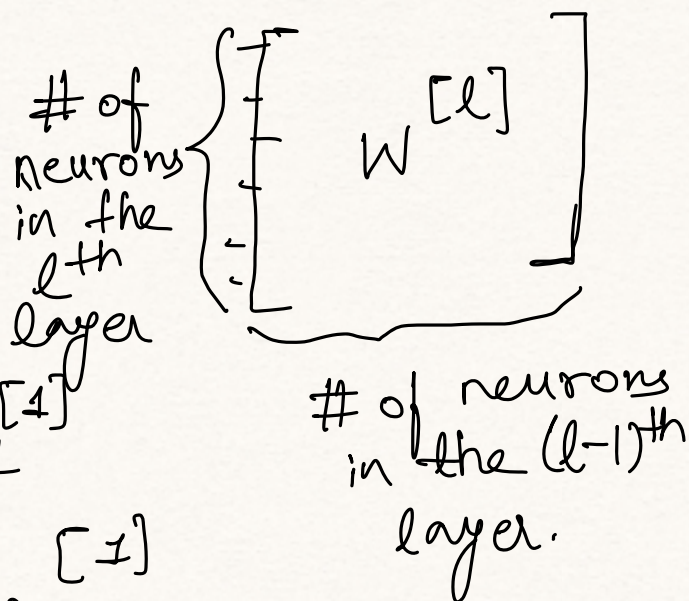 # of
neurons
in the
lth
layer
W[l]
[1]
# of neurons
in the (l-1)th
layer.
[1]